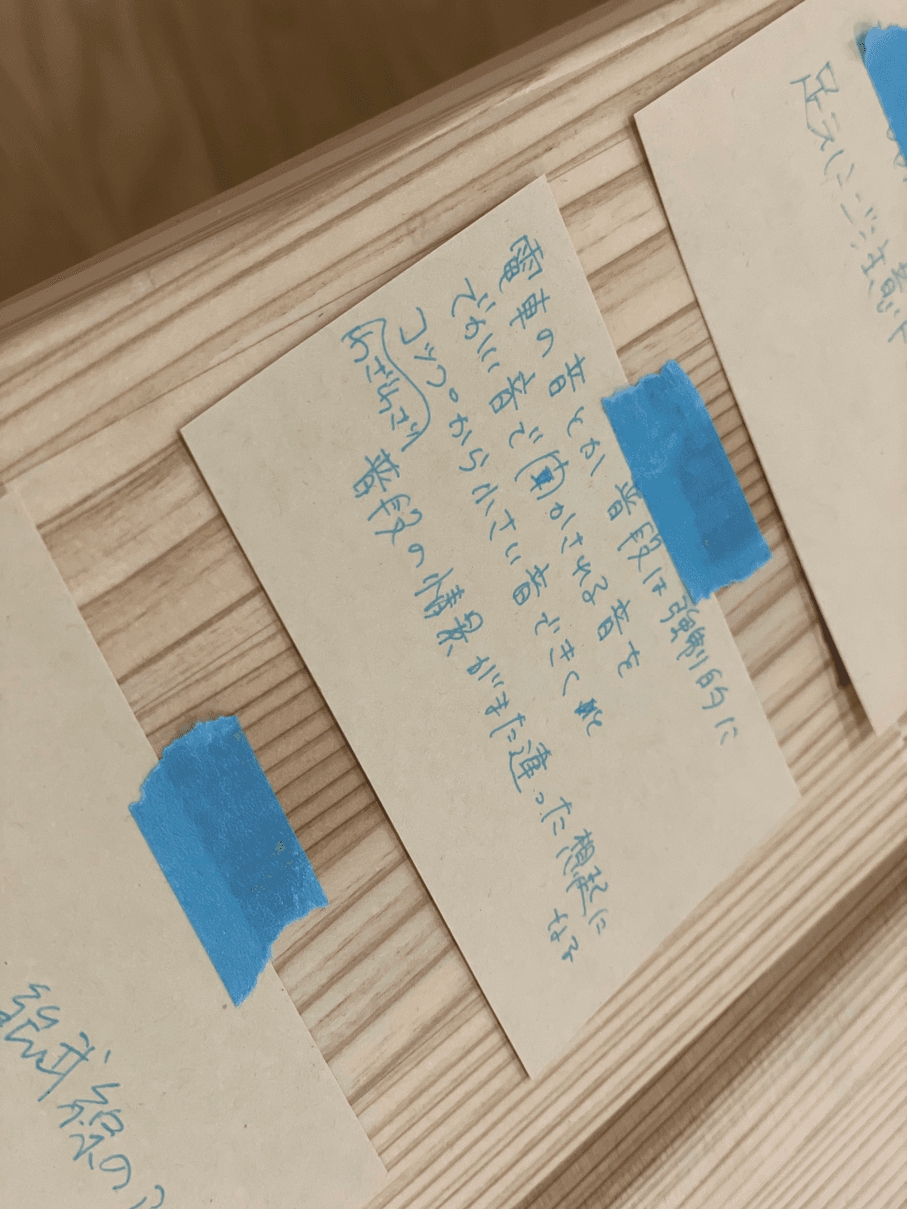 足元にご注意下
電車の音とか普段は強制的に
でかい音で聞かされる音を
コップから小さい音できくと
(わざわざ) 普段の情景がまた違った想起に
なる
総武線の